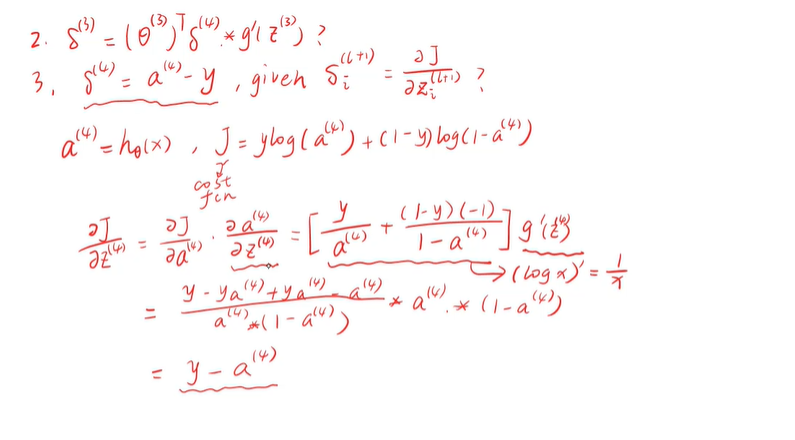 2. δ^(3) = (θ^(3))^T δ^(4) .* g'(z^(3)) ?
3. δ^(4) = a^(4) - y , given δ_i^(l+1) = ∂J/∂z_i^(l+1) ?
a^(4) = h_θ(x) , J = ylog(a^(4)) + (1-y)log(1-a^(4))
cost
fcn
∂J/∂z^(4) = ∂J/∂a^(4) · ∂a^(4)/∂z^(4) = [y/a^(4) + (1-y)(-1)/(1-a^(4))] g'(z^(4))
→ (log x)' = 1/x
= (y - ya^(4) + ya^(4) - a^(4))/(a^(4) .* (1-a^(4))) * a^(4) .* (1-a^(4))
= y - a^(4)